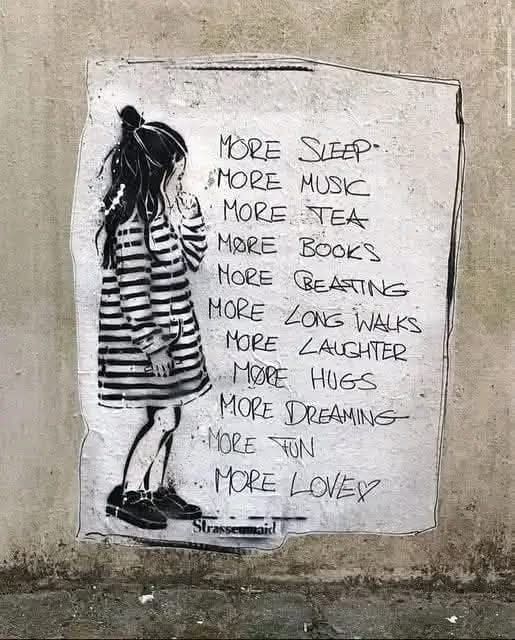 MORE SLEEP
MORE MUSIC
MORE TEA
MØRE BOOKS
MORE CREATING
MORE LONG WALKS
MORE LAUGHTER
MØRE HUGS
MORE DREAMING
MORE FUN
MORE LOVE♡
Strassenmaid